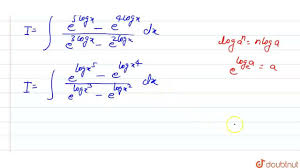 I = ∫ (e^{5 log x} − e^{4 log x}) / (e^{3 log x} − e^{2 log x}) dx
log aⁿ = n log a
e^{log a} = a
I = ∫ (e^{log x⁵} − e^{log x⁴}) / (e^{log x³} − e^{log x²}) dx
doubtnut